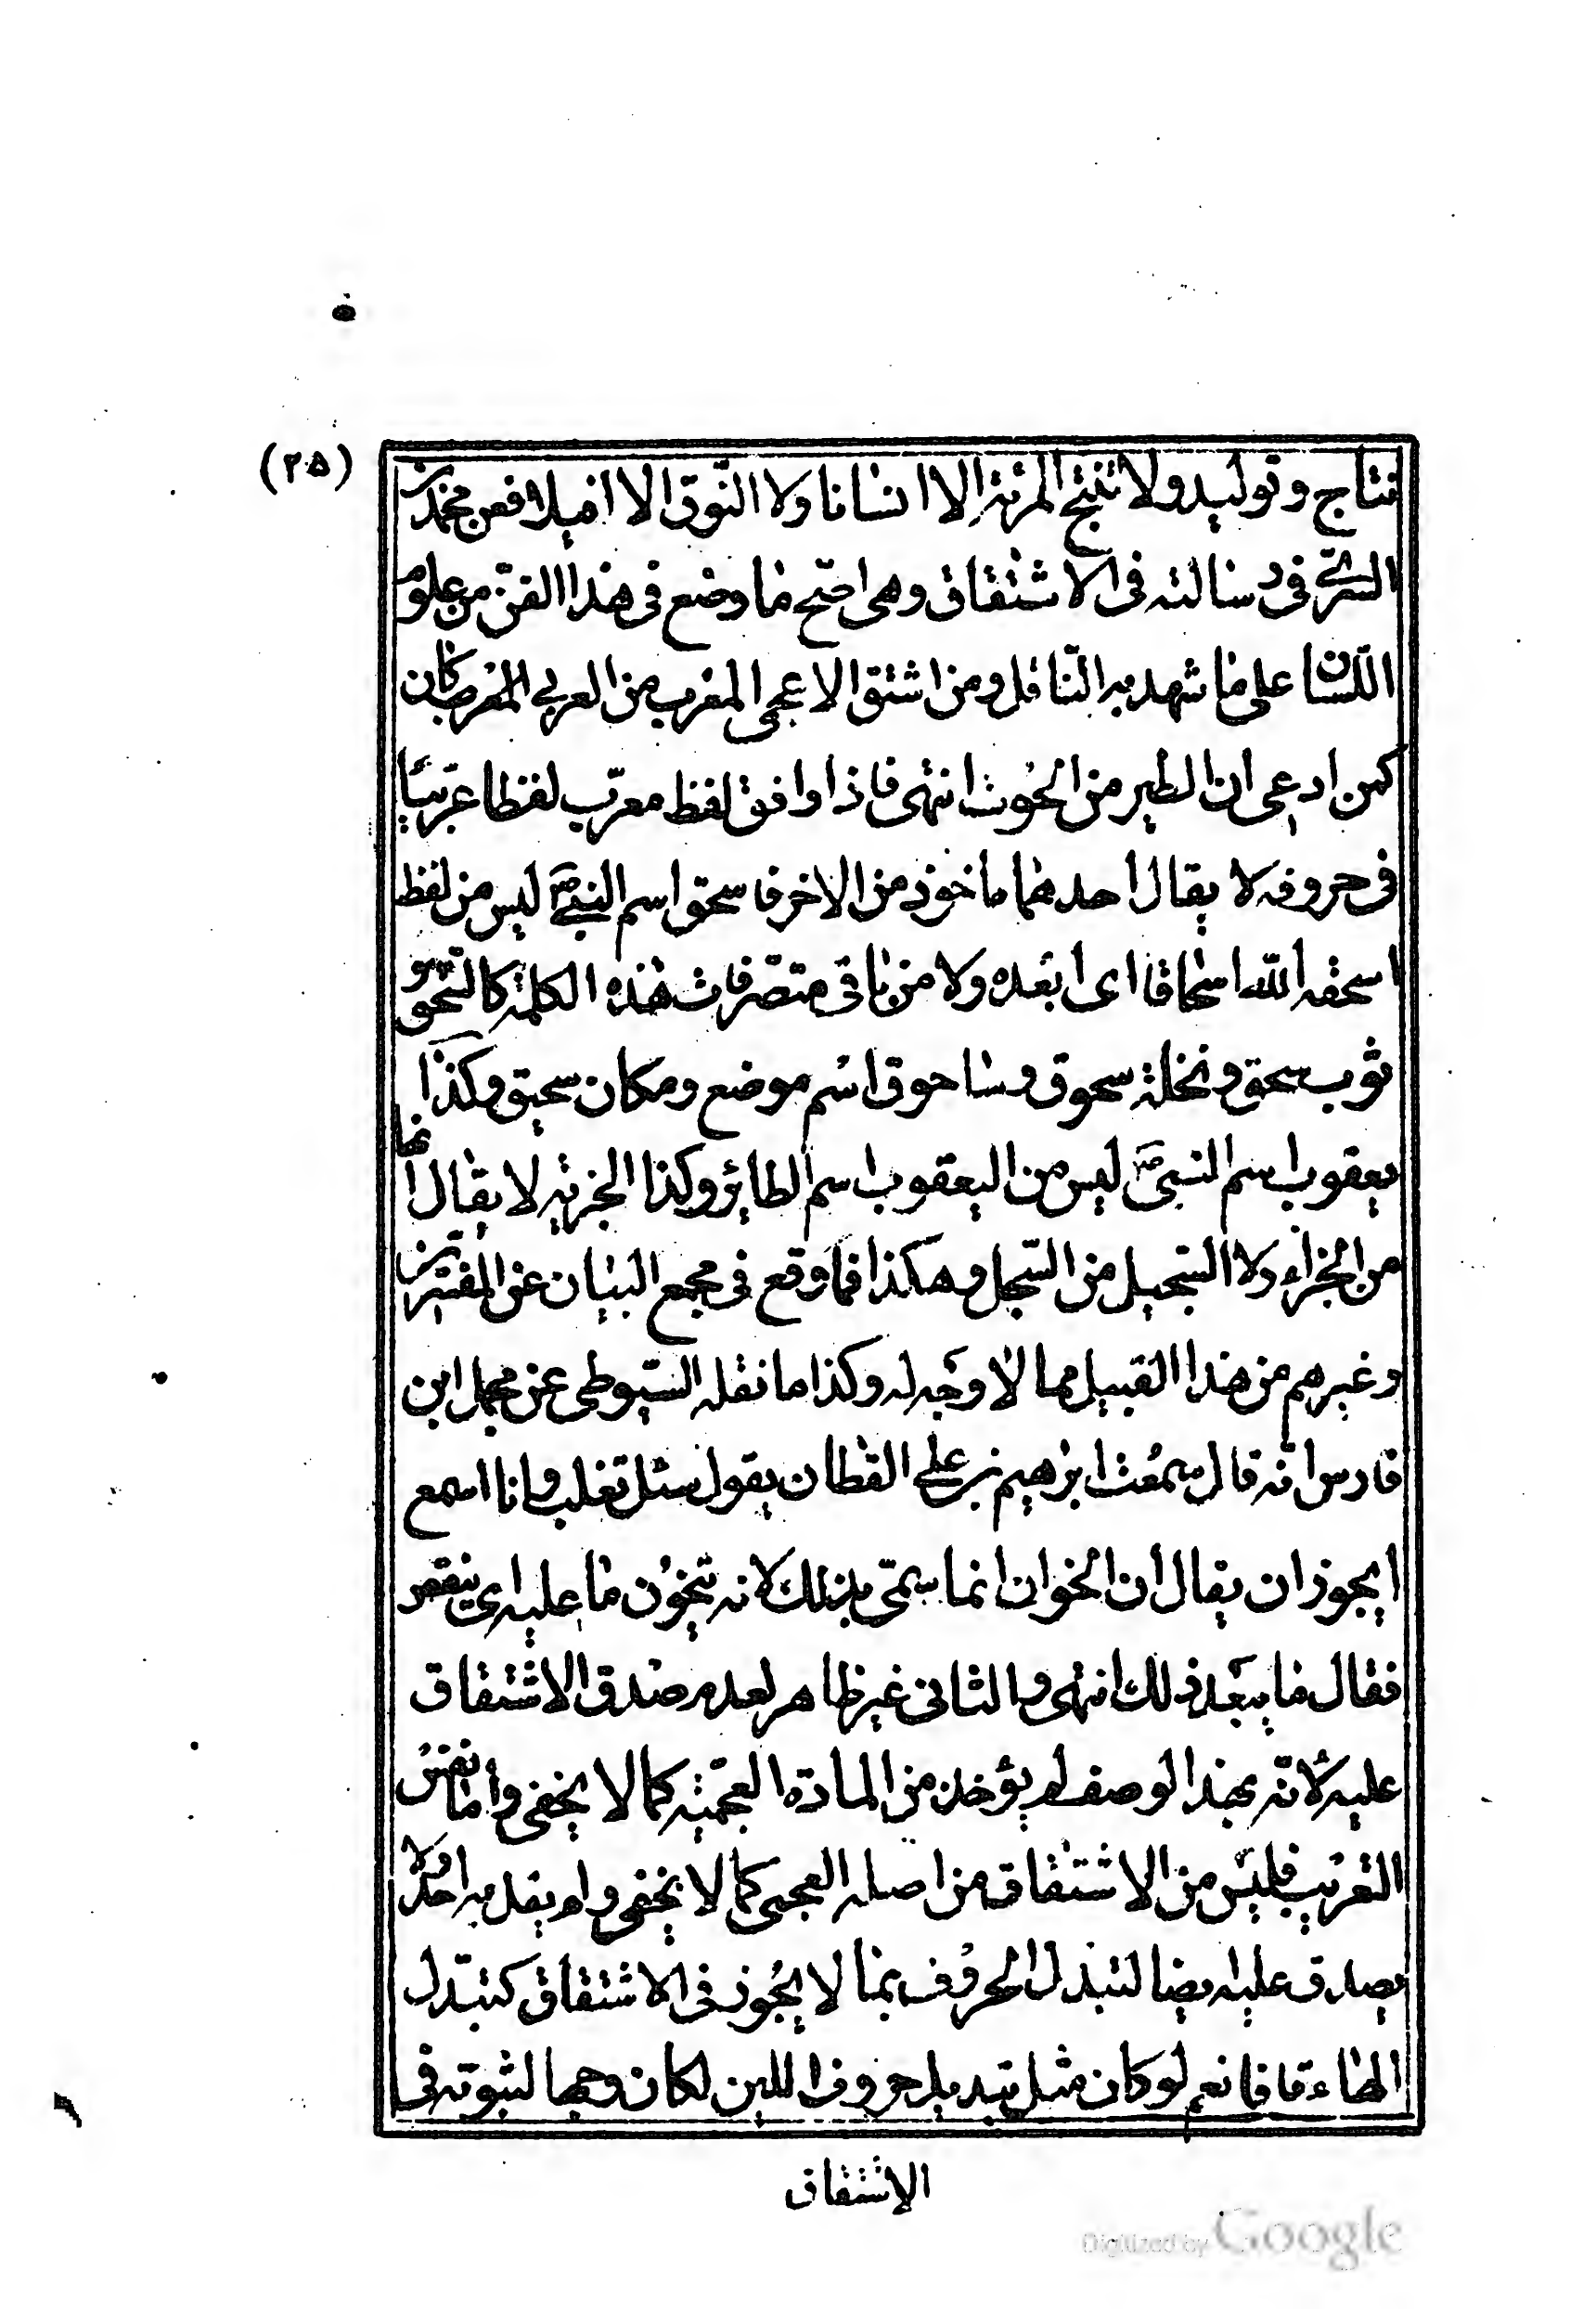 (٢۵)
نتاج وتوليد ولا تنتج المرئة الا انسانا ولا النوق الا افيلا فعن محمد بن
السرّی فی رسالته فی الاشتقاق وهی اصحّ ما وضع فی هذا الفنّ من علوم
اللّسان علی ما شهد به النّاقل ومن اشتق الاعجمی المعرب من العربی المعرب كان
كمن ادعی ان الطير من الحُوت انتهی فاذا وافق لفظ معرّب لفظا عَرَبيّا
فی حروفه لا يقال احدهما ماخوذ من الاخر فاسحق اسم النبیّ ص ليس من لفظ
اسحقه الله اسحاقا ای ابعده ولا من باقی متصرّفات هذه الكلمة كالسّحق و
ثوب سحق ونخلة سحوق وساحوق اسم موضع ومكان سحيق وكذا
يعقوب اسم النّبیّ ص ليس من اليعقوب اسم الطائر وكذا الجزية لا يقال انها
من الجزاء ولا السّجيل من السّجل وهكذا فما وقع فی مجمع البيان عن المفسّرين
وغيرهم من هذا القبيل مما لا وَجه له وكذا ما نقله السّيوطی عن مجمل ابن
فارس انّه قال سمعت ابرٰهيم بن علی القطان يقول سئل ثعلب وانا اسمع
ايجوز ان يقال ان الخوان انما سمّی بذلك لانه يتخوّن ما عليه ای ينتقص
فقال ما يبعد ذلك انتهی والثانی غير ظاهر لعدم صدق الاشتقاق
عليه لأنّه بهذا الوصف لم يؤخذ من المادة العجميّة كما لا يخفی واما نفس
التعريب فليس من الاشتقاق من اصله العجمی كما لا يخفی ولم يقل به احد ولا
يصدق عليه ايضا لتبدل الحروف بما لا يجُوز فی الاشتقاق كتبدّل
الهاء قافا نعم لو كان مثل تبديل حروف اللين لكان وجها لثبوته فی
الاشتقاق
Digitized by Google